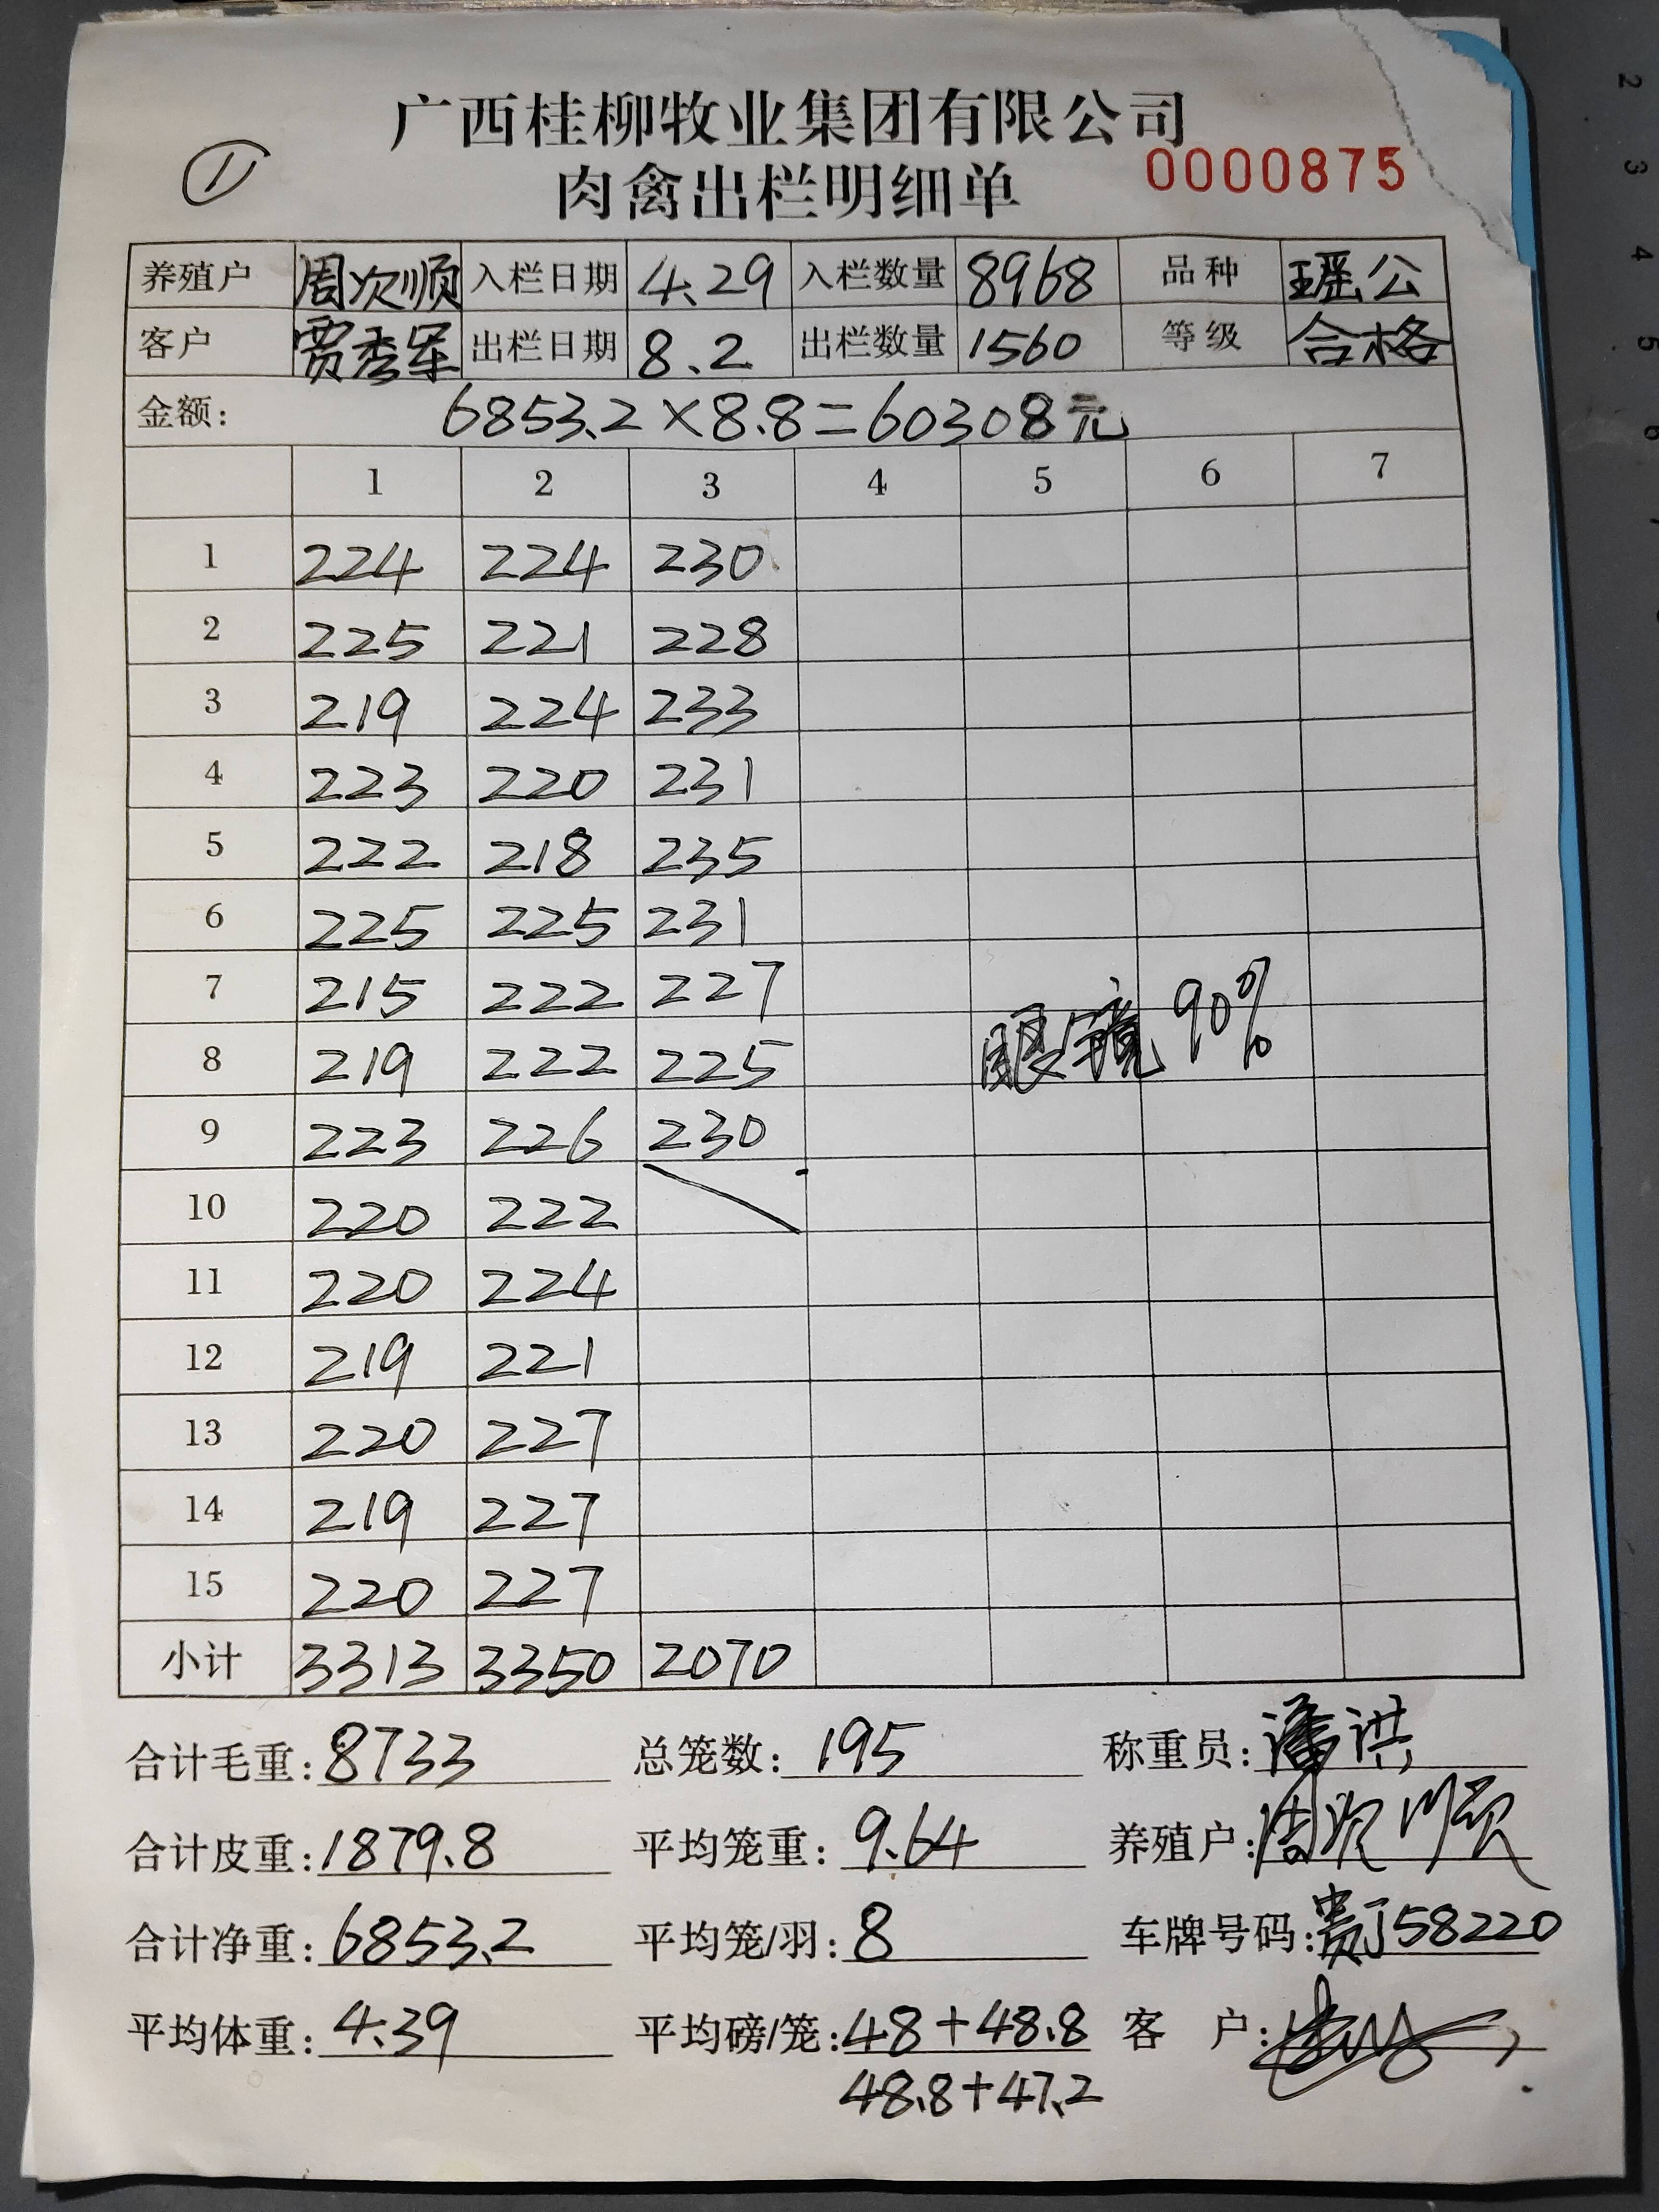 广西桂柳牧业集团有限公司
① 肉禽出栏明细单 0000875
养殖户 周次顺 入栏日期 4.29 入栏数量 8968 品种 瑶公
客户 贾秀军 出栏日期 8.2 出栏数量 1560 等级 合格
金额: 6853.2×8.8=60308元
1 2 3 4 5 6 7
1 224 224 230
2 225 221 228
3 219 224 233
4 223 220 231
5 222 218 235
6 225 225 231
7 215 222 227
眼镜 90%
8 219 222 225
9 223 226 230
10 220 222
11 220 224
12 219 221
13 220 227
14 219 227
15 220 227
小计 3313 3350 2070
合计毛重: 8733 总笼数: 195 称重员: 潘洪
合计皮重: 1879.8 平均笼重: 9.64 养殖户: 周次顺
合计净重: 6853.2 平均笼/羽: 8 车牌号码: 贵J58220
平均体重: 4.39 平均磅/笼: 48+48.8 客 户:
48.8+47.2
2
3
4
5
6